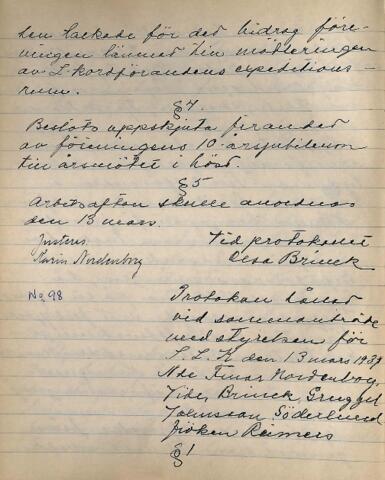 den tackade för det bidrag före-
ningen lämnat till möbleringen
av L-kordförandens expeditions-
rum.
§ 4.
Beslöts uppskjuta firandet
av föreningens 10-årsjubileum
till årsmötet i höst.
§ 5
Arbetsafton skulle anordnas
den 13 mars.
Justeras
Karin Nordenborg
Vid protokollet
Elsa Brinck
No 98
Protokoll hållet
vid sammanträde
med styrelsen för
S. L. K den 13 mars 1939
Nde Fruar Nordenborg,
Brinck,
Johnsson, Söderlund
fröken Reimers
§ 1